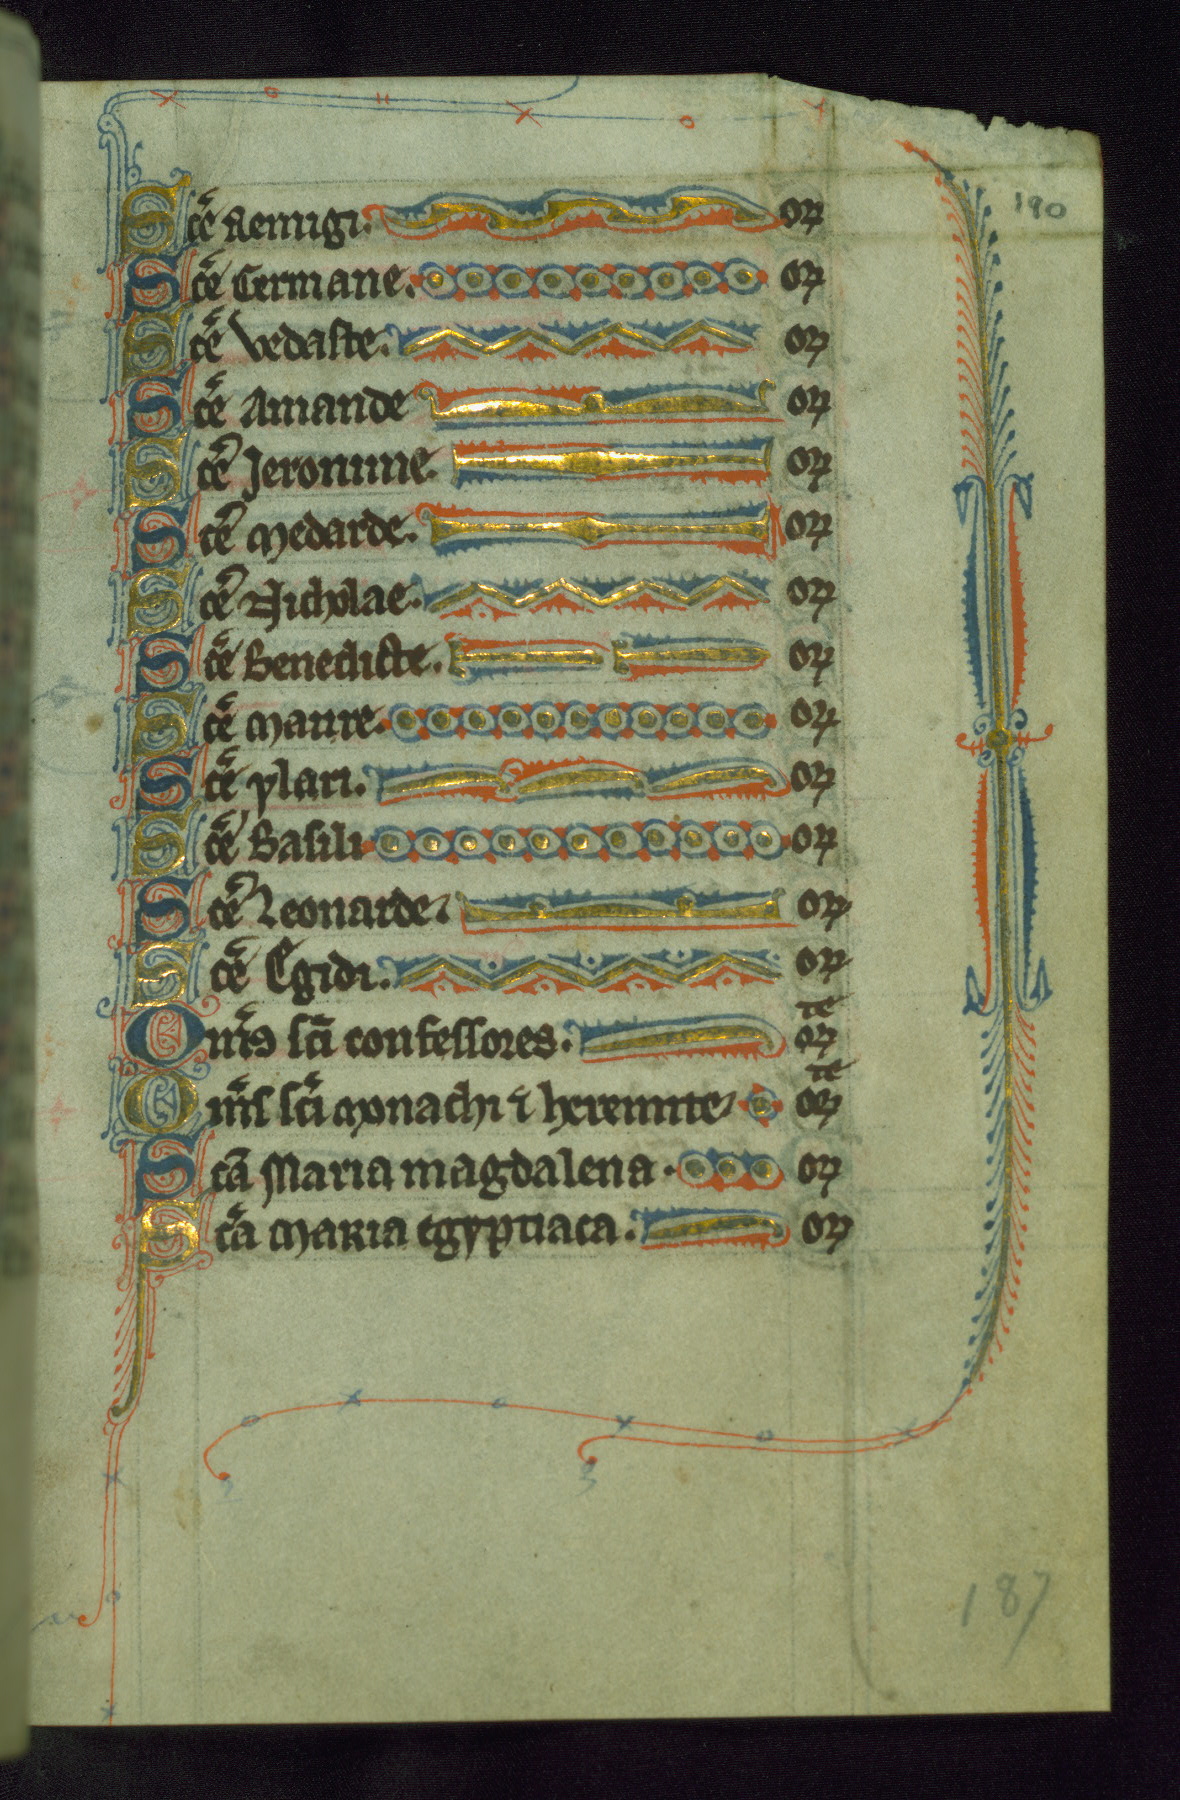 190
Scē Remigi. or
Scē Germane. or
Scē Vedaste. or
Scē Amande or
Scē Jeronime. or
Scē Medarde. or
Scē Nicholae. or
Scē Benedicte. or
Scē Maure. or
Scē ylari. or
Scē Basili or
Scē Leonarde. or
Scē Egidi. or
Om̄s sc̄i confessores. orate
Om̄s sc̄i monachi ⁊ heremite or te
Scā Maria magdalena. or
Scā Maria egyptiaca. or
2 3
187